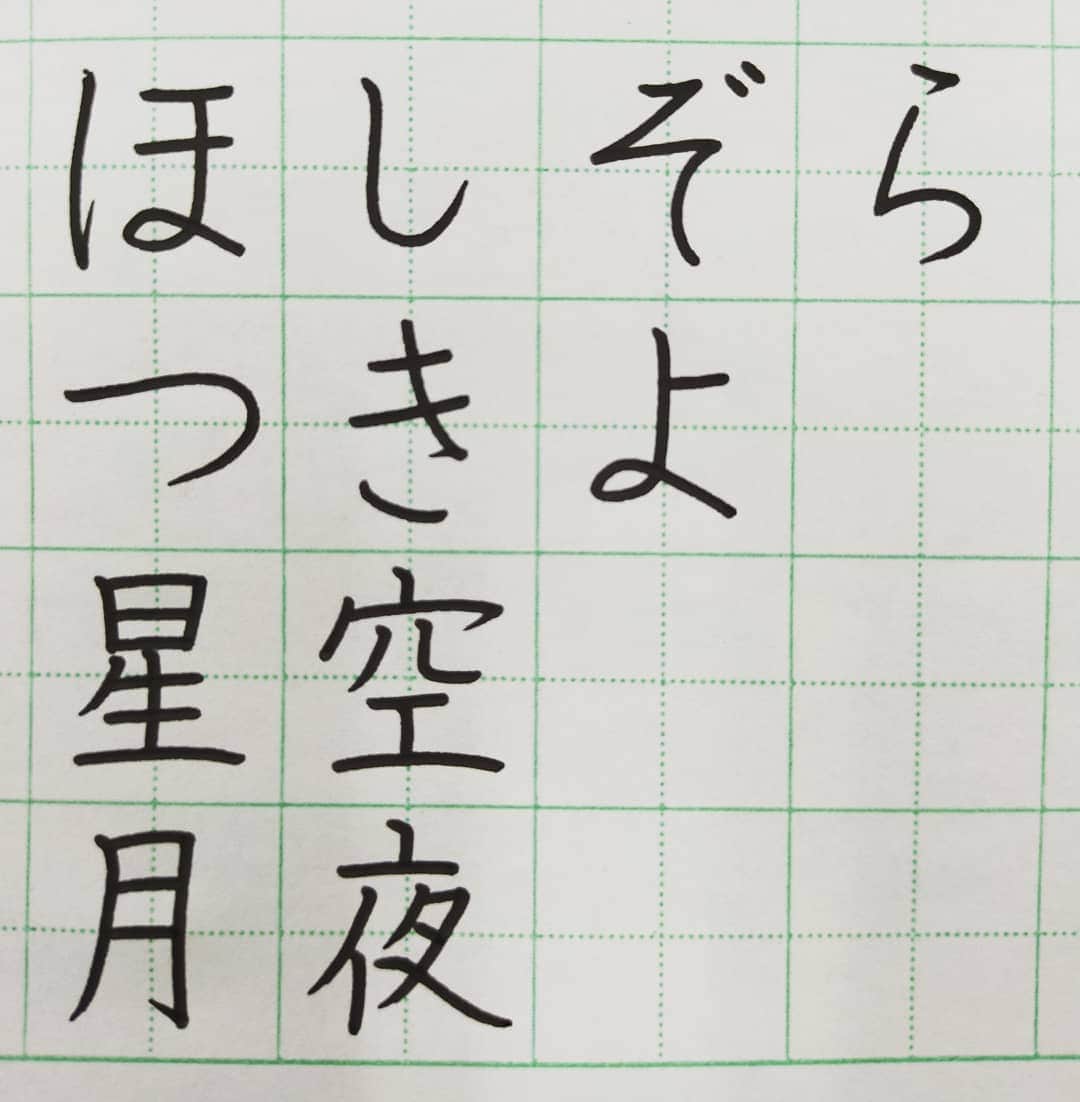 ほしぞら
つきよ
星空
月夜